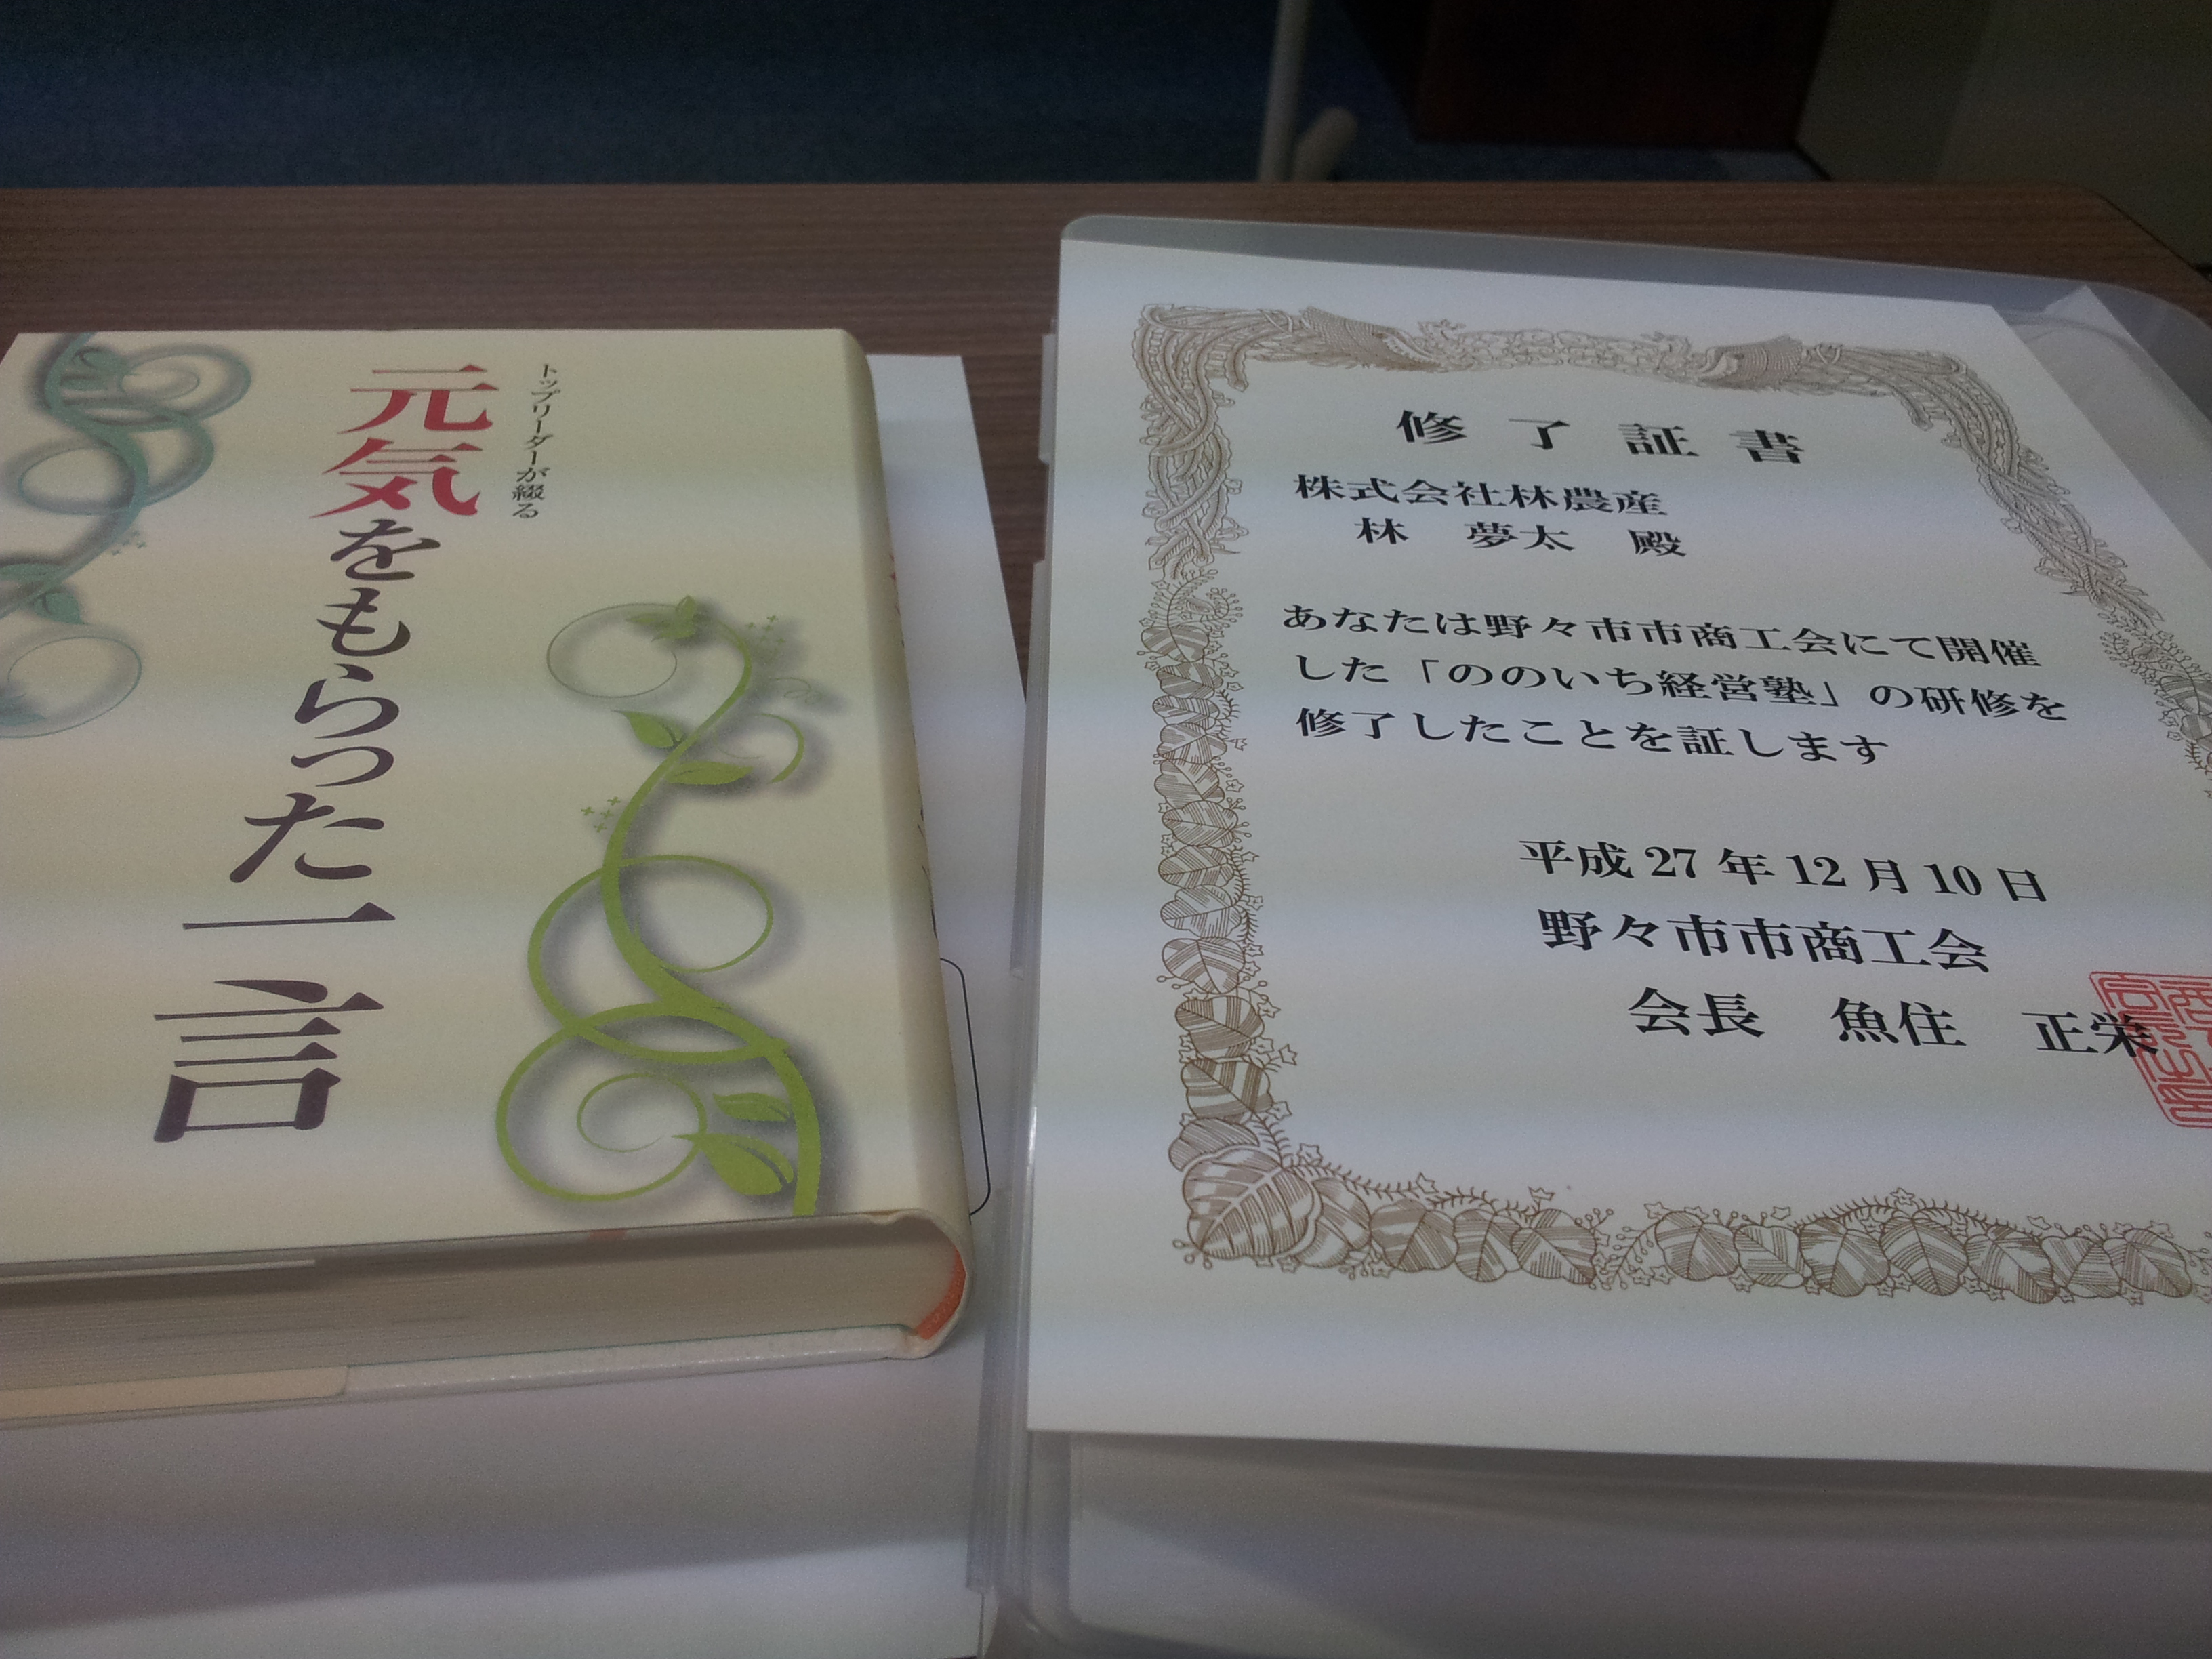 トップリーダーが綴る
元気をもらった一言
修了証書
株式会社林農産
林 夢太 殿
あなたは野々市市商工会にて開催
した「ののいち経営塾」の研修を
修了したことを証します
平成27年12月10日
野々市市商工会
会長 魚住 正栄